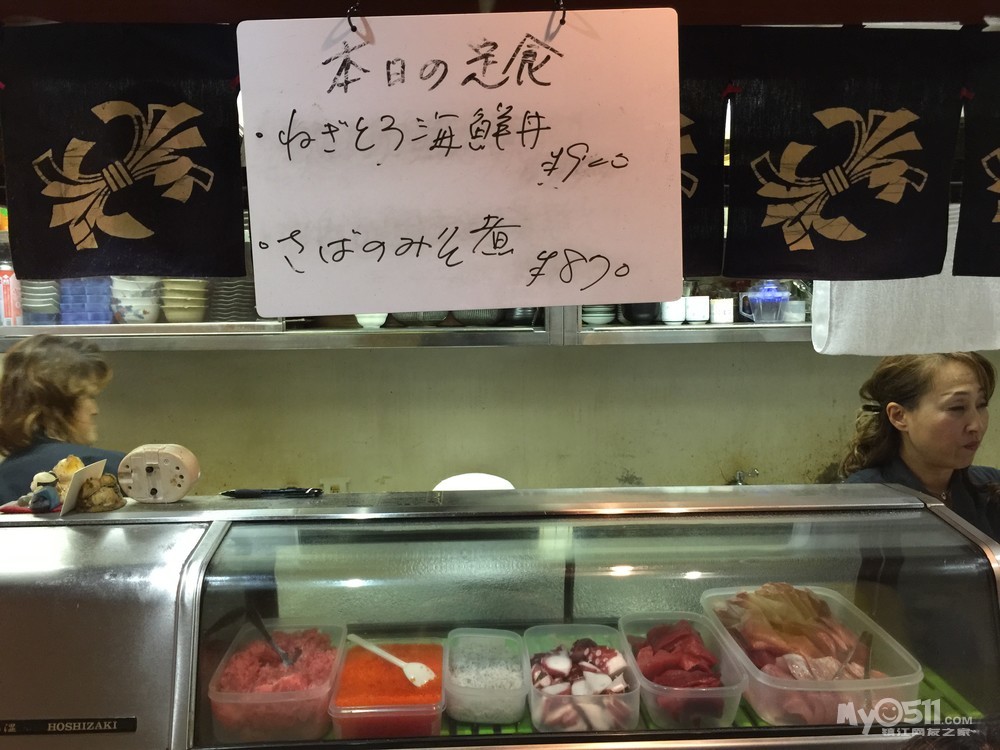 本日の定食
・ねぎとろ海鮮丼
¥900
・さばのみそ煮
¥870
温 HOSHIZAKI
My0511.com
镇江网友之家